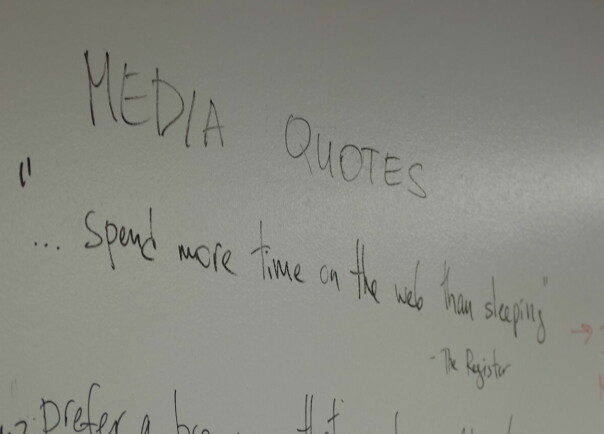 MEDIA QUOTES
"... Spend more time on the web than sleeping"
- The Register
Prefer a